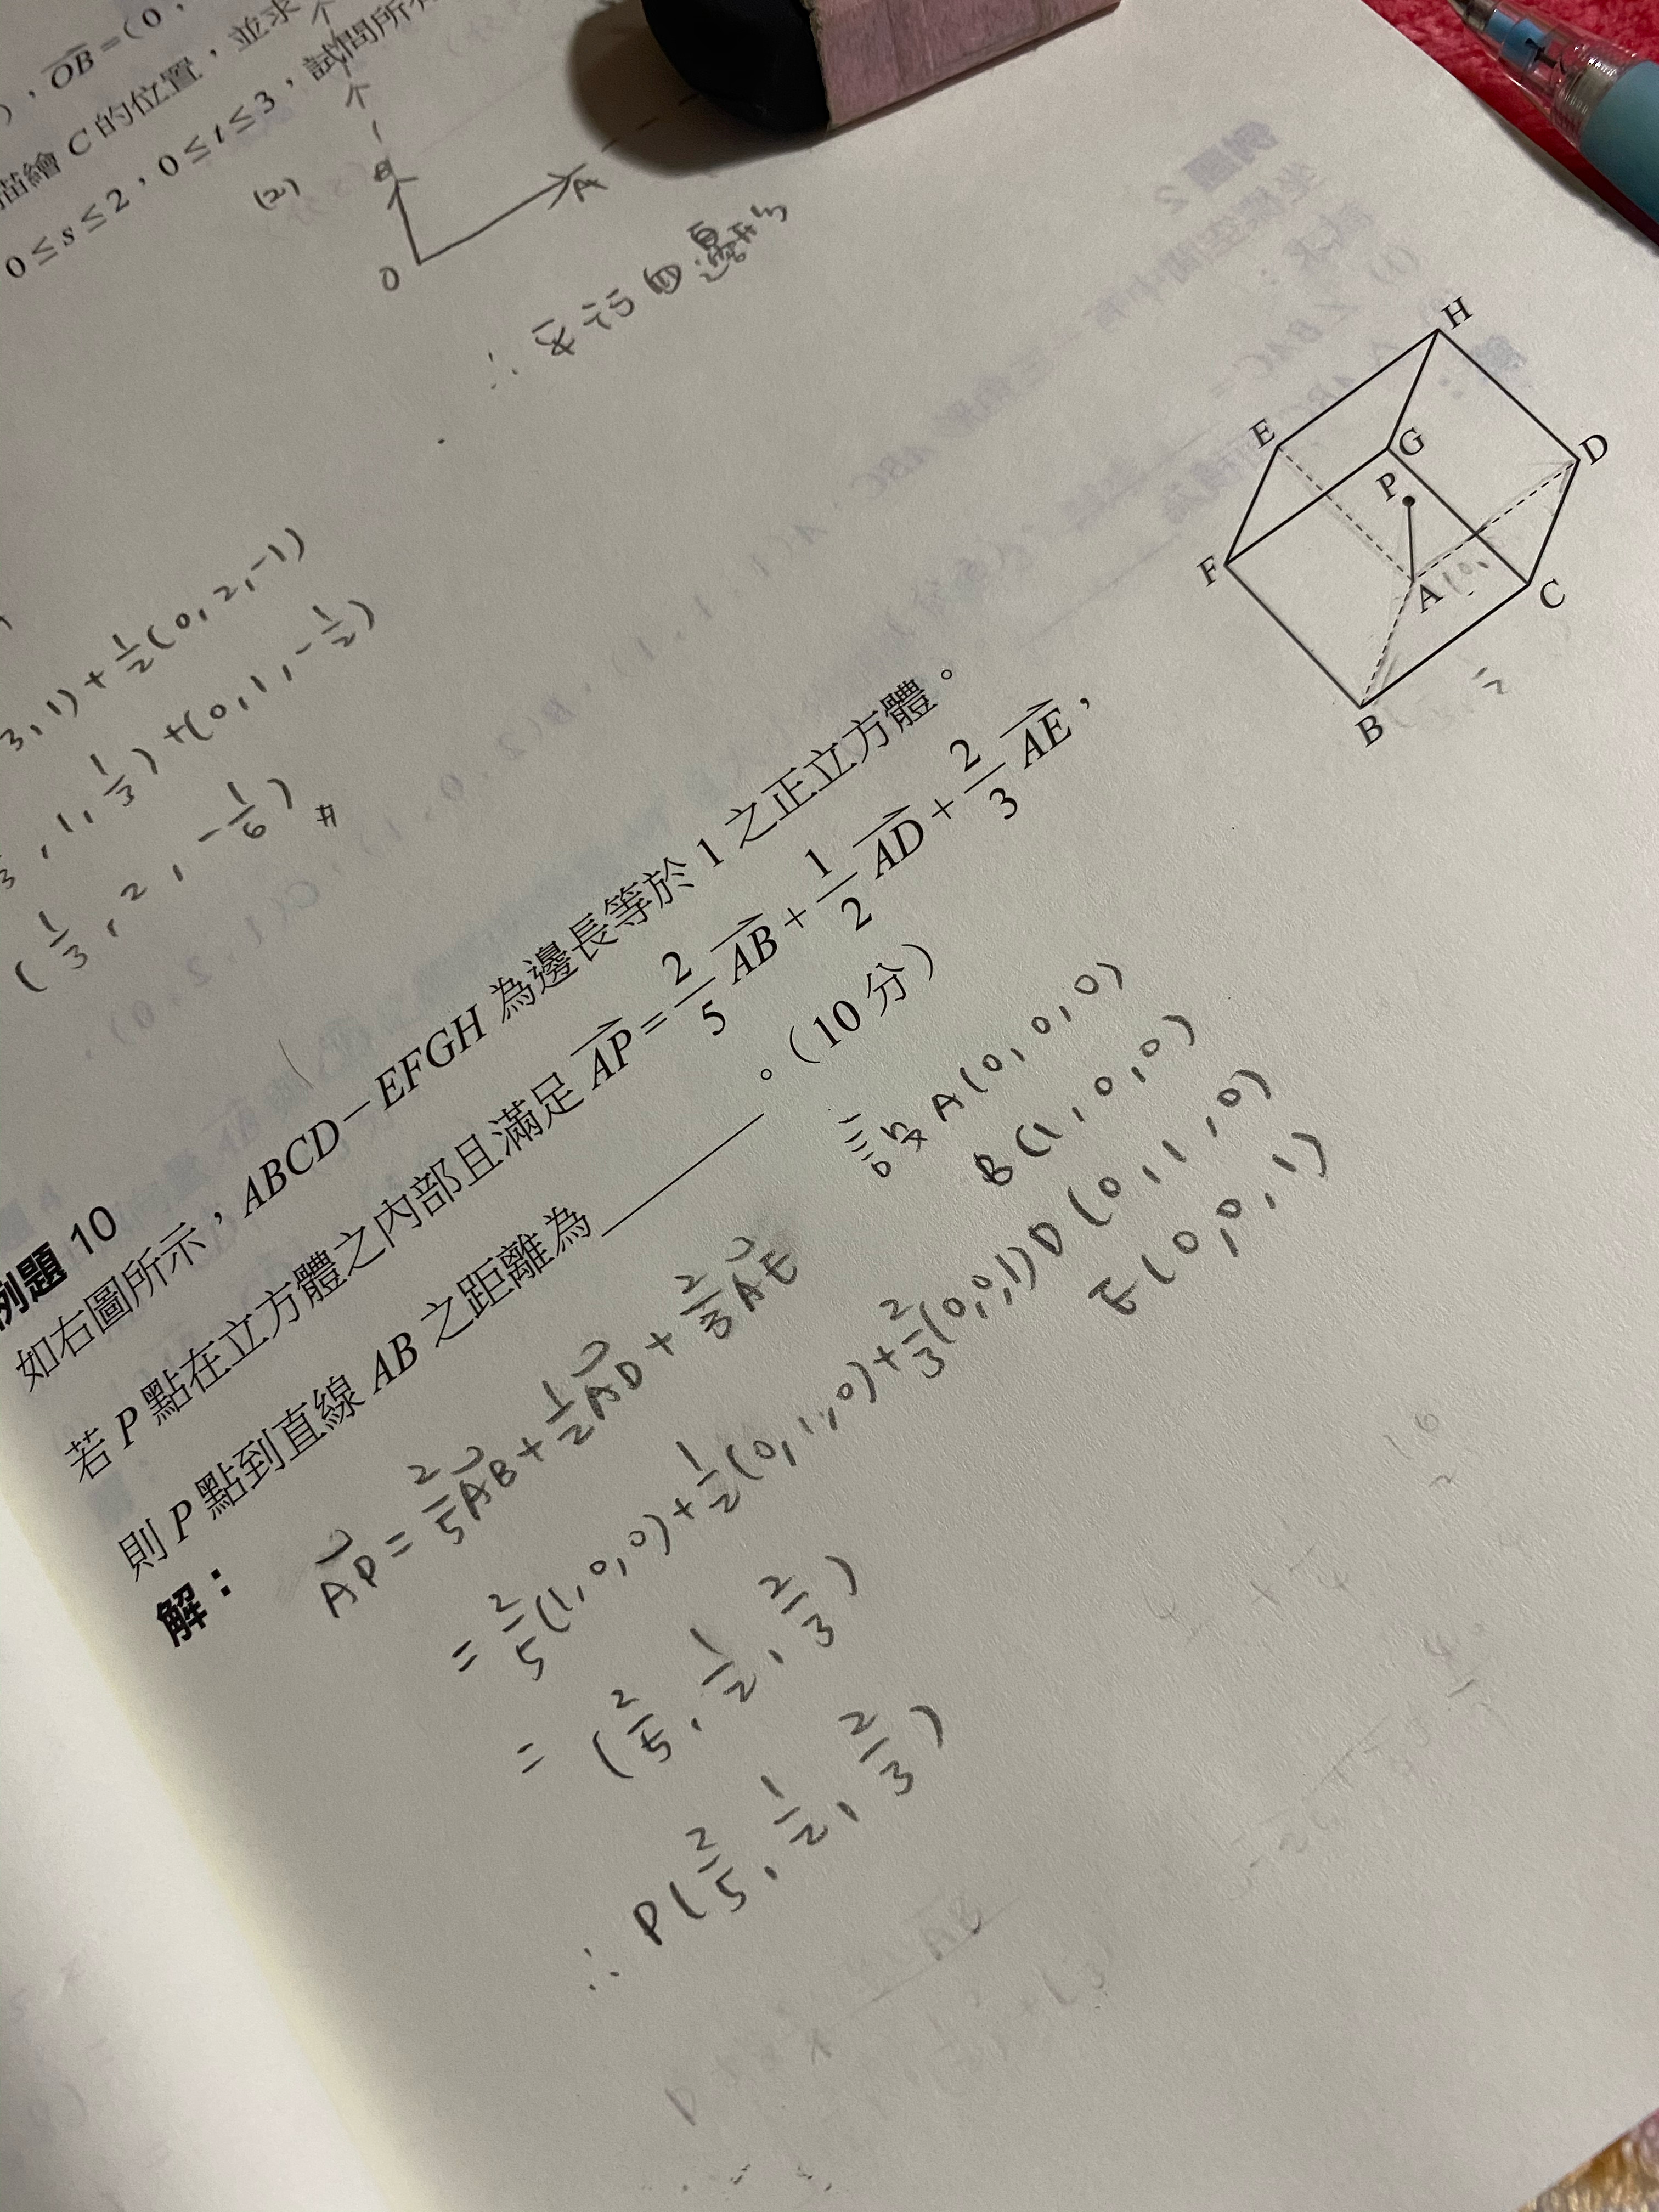 , \overrightarrow{OB}=(0,
描繪 C 的位置，並求
0≤s≤2，0≤t≤3，試問所
(2)
B
A
O
∴ 平行四邊形
3,1)+\frac{1}{2}(0,2,-1)
,1,\frac{1}{3})+(0,1,-\frac{1}{2})
(\frac{1}{3},2,-\frac{1}{6})#
H
E
G
D
P
F
A
C
B
例題 10
如右圖所示，ABCD－EFGH 為邊長等於 1 之正立方體。
若 P 點在立方體之內部且滿足 \overrightarrow{AP}=\frac{2}{5}\overrightarrow{AB}+\frac{1}{2}\overrightarrow{AD}+\frac{2}{3}\overrightarrow{AE}，
則 P 點到直線 AB 之距離為________。（10 分）
解：
設 A(0,0,0)
B(1,0,0)
D(0,1,0)
E(0,0,1)
\overrightarrow{AP}=\frac{2}{5}\overrightarrow{AB}+\frac{1}{2}\overrightarrow{AD}+\frac{2}{3}\overrightarrow{AE}
=\frac{2}{5}(1,0,0)+\frac{1}{2}(0,1,0)+\frac{2}{3}(0,0,1)
=(\frac{2}{5},\frac{1}{2},\frac{2}{3})
∴ P(\frac{2}{5},\frac{1}{2},\frac{2}{3})